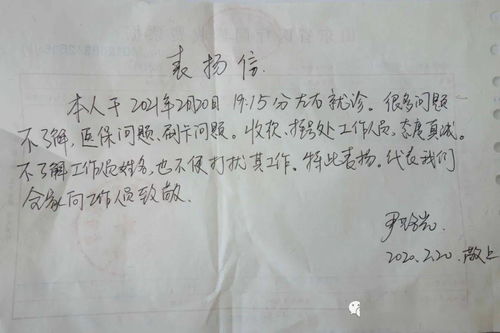 表扬信
本人于2021年2月20日 19:15分左右就诊。很多问题
不了解，医保问题、刷卡问题。收款、挂号处工作人员，态度真诚。
不了解工作人员姓名，也不便打扰其工作。特此表扬。代表我们
全家向工作人员致敬
2020.2.20.敬上